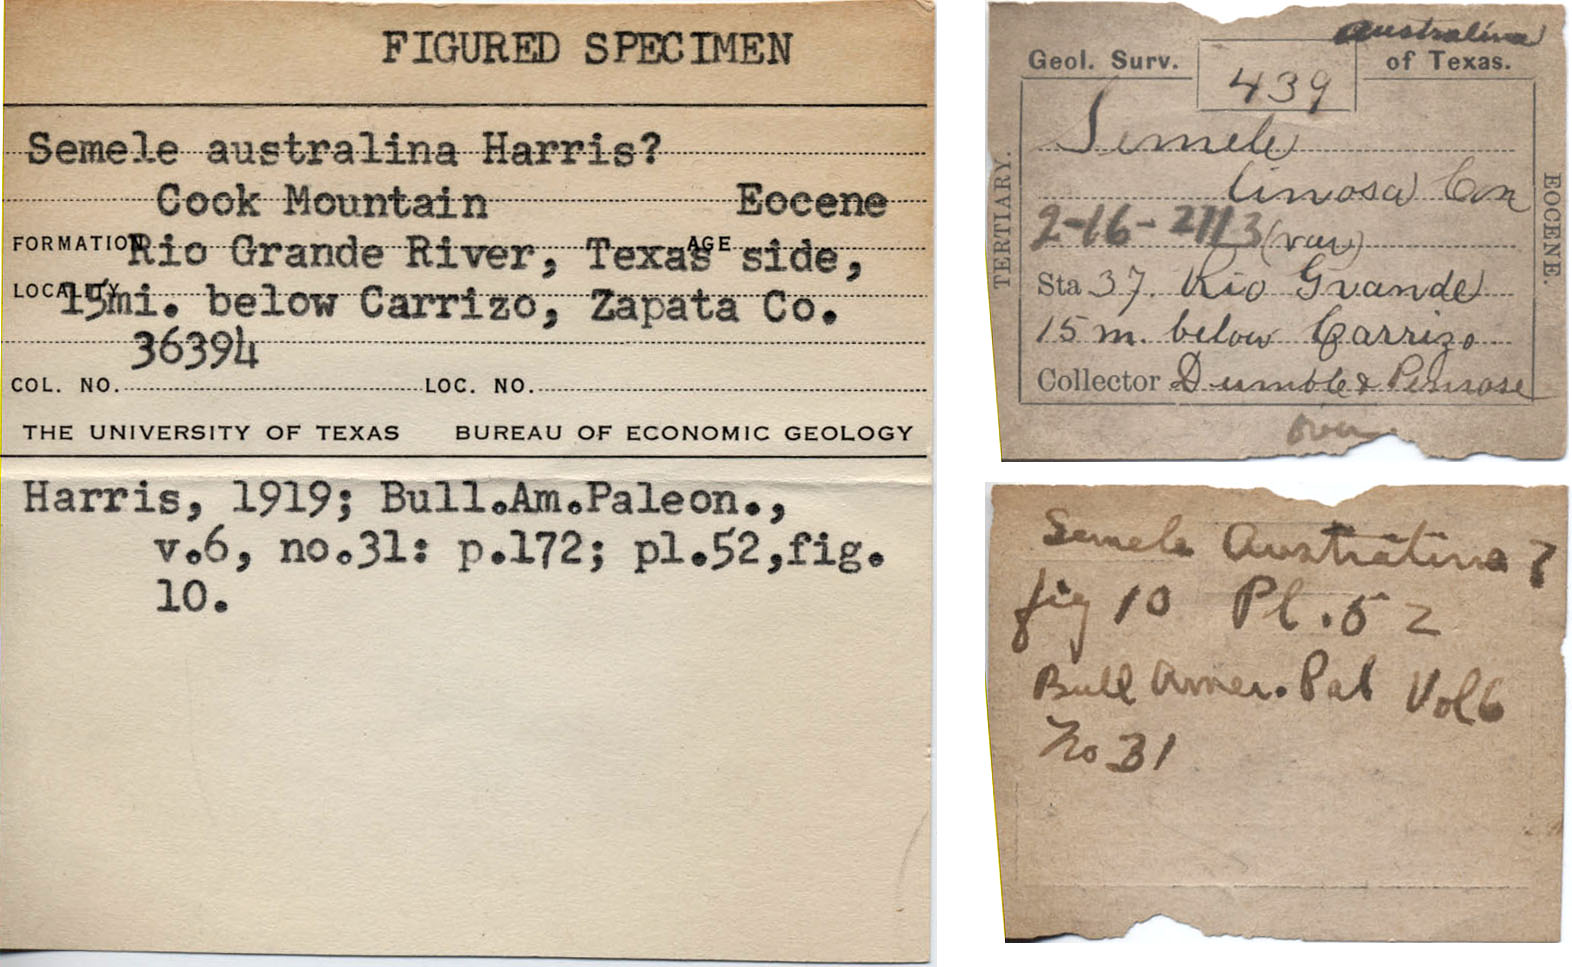 FIGURED SPECIMEN
Semele australina Harris?
Cook Mountain Eocene
FORMATION AGE
Rio Grande River, Texas side,
LOCALITY
15mi. below Carrizo, Zapata Co.
36394
COL. NO. LOC. NO.
THE UNIVERSITY OF TEXAS BUREAU OF ECONOMIC GEOLOGY
Harris, 1919; Bull.Am.Paleon.,
v.6, no.31: p.172; pl.52,fig.
10.
australina
Geol. Surv. 439 of Texas.
TERTIARY.
EOCENE.
Semele
linosa Con
2-16-2113 (var)
Sta 37. Rio Grande
15 m. below Carrizo
Collector Dumble & Penrose
over
Semele Australina ?
fig 10 Pl. 52
Bull Amer. Pal Vol 6
No 31